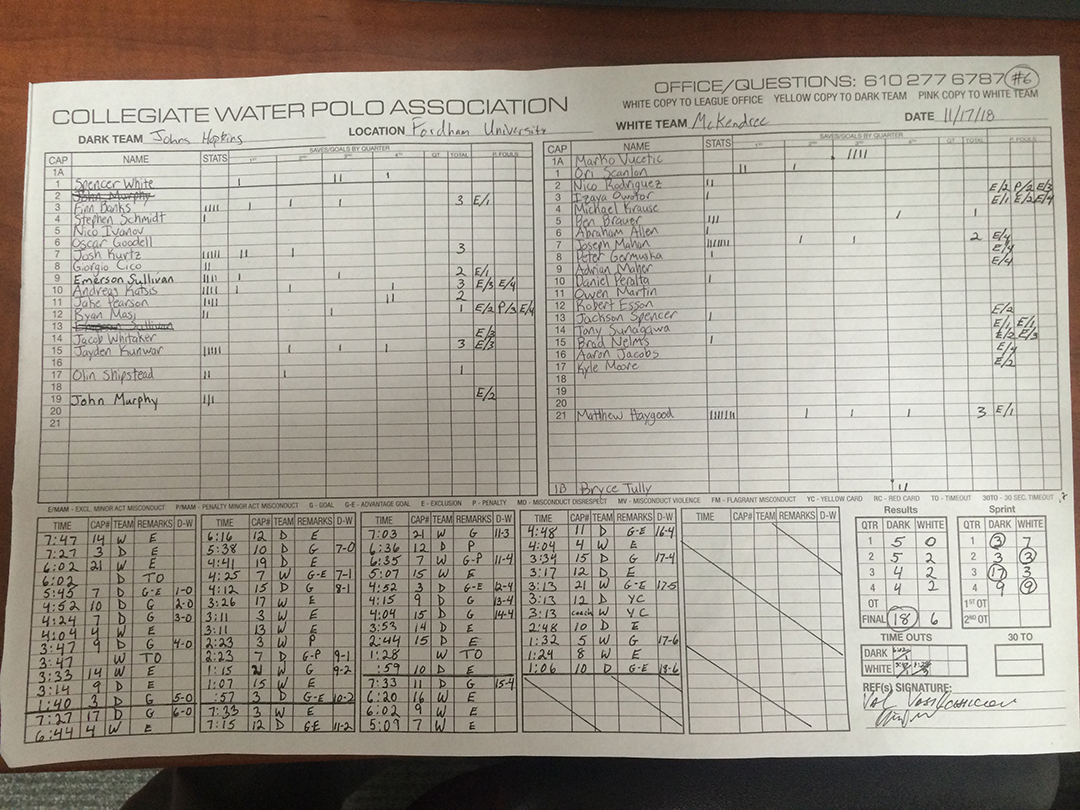 OFFICE/QUESTIONS: 610 277 6787 #6
COLLEGIATE WATER POLO ASSOCIATION
WHITE COPY TO LEAGUE OFFICE YELLOW COPY TO DARK TEAM PINK COPY TO WHITE TEAM
DARK TEAM Johns Hopkins LOCATION Fordham University WHITE TEAM McKendree DATE 11/17/18
CAP NAME STATS SAVES/GOALS BY QUARTER 1ST 2ND 3RD 4TH OT TOTAL P. FOULS
1A
1 Spencer White
2 John Murphy
3 Finn Banks 3 E/1
4 Stephen Schmidt
5 Nico Ivanov
6 Oscar Goodell
7 Josh Kurtz 3
8 Giorgio Cico
9 Emerson Sullivan 2 E/1
10 Andreas Katsis 3 E/3 E/4
11 Jake Pearson 2
12 Ryan Masi 1 E/2 P/3 E/4
13 Emerson Sullivan
14 Jacob Whitaker E/3
15 Jayden Kunwar 3 E/3
16
17 Olin Shipstead 1
18
19 John Murphy E/2
20
21
CAP NAME STATS SAVES/GOALS BY QUARTER OT TOTAL P. FOULS
1A Marko Vucetic
1 Ori Scanlan
2 Nico Rodriguez E/2 P/2 E/3
3 Izaya Owotor E/1 E/2 E/4
4 Michael Krause
5 Ben Brauer 1
6 Abraham Allen E/4
7 Joseph Mahan 2 E/4
8 Peter Germuska E/4
9 Adrian Maher
10 Daniel Peralta
11 Owen Martin
12 Robert Esson E/2
13 Jackson Spencer E/1 E/1
14 Tony Sunagawa E/2 E/3
15 Brad Nelms E/4
16 Aaron Jacobs E/2
17 Kyle Moore
18
19
20
21 Matthew Haygood 3 E/1
1B Bryce Tully
E/MAM - EXCL. MINOR ACT MISCONDUCT P/MAM - PENALTY MINOR ACT MISCONDUCT G - GOAL G-E - ADVANTAGE GOAL E - EXCLUSION P - PENALTY MD - MISCONDUCT DISRESPECT MV - MISCONDUCT VIOLENCE FM - FLAGRANT MISCONDUCT YC - YELLOW CARD RC - RED CARD TO - TIMEOUT 30TO - 30 SEC. TIMEOUT
TIME CAP# TEAM REMARKS D-W
7:47 14 W E
7:27 3 D E
6:02 21 W E
6:02 D TO
5:45 7 D G-E 1-0
4:52 10 D G 2-0
4:24 7 D G 3-0
4:04 4 W E
3:47 9 D G 4-0
3:47 W TO
3:33 14 W E
3:14 9 D E
1:40 3 D G 5-0
7:27 17 D G 6-0
6:44 4 W E
TIME CAP# TEAM REMARKS D-W
6:16 12 D E
5:38 10 D G 7-0
4:41 19 D E
4:25 7 W G-E 7-1
4:12 15 D G 8-1
3:26 17 W E
3:11 3 W E
3:11 13 W E
2:23 3 W P
2:23 7 D G-P 9-1
1:15 21 W G 9-2
1:07 15 W E
:57 3 D G-E 10-2
7:33 3 W E
7:15 12 D G-E 11-2
TIME CAP# TEAM REMARKS D-W
7:03 21 W G 11-3
6:36 12 D P
6:35 7 W G-P 11-4
5:07 15 W E
4:52 3 D G-E 12-4
4:15 9 D G 13-4
4:04 15 D G 14-4
3:53 14 D E
2:44 15 D E
1:28 W TO
:59 10 D E
7:33 11 D G 15-4
6:20 16 W E
6:02 9 W E
5:09 7 W E
TIME CAP# TEAM REMARKS D-W
4:48 11 D G-E 16-4
4:04 4 W E
3:34 15 D G 17-4
3:17 12 D E
3:13 21 W G-E 17-5
3:13 12 D YC
3:13 coach W YC
2:48 10 D E
1:32 5 W G 17-6
1:24 8 W E
1:06 10 D G-E 18-6
TIME CAP# TEAM REMARKS D-W
Results
QTR DARK WHITE
1 5 0
2 5 2
3 4 2
4 4 2
OT
FINAL 18 6
Sprint
QTR DARK WHITE
1 3 7
2 3 3
3 17 3
4 9 9
1ST OT
2ND OT
TIME OUTS
DARK
WHITE
30 TO
REF(s) SIGNATURE: